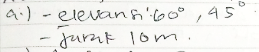 a.) - elevansi : 60° , 45°
- Jarak 10 m.